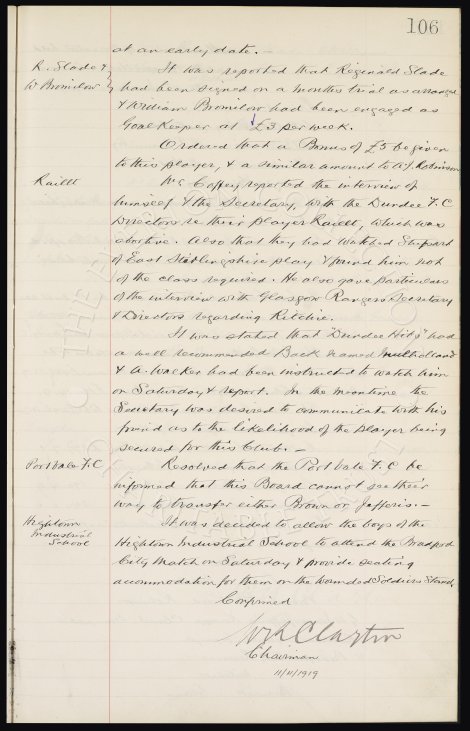 106
at an early date. –
R. Slade &
W Bromilow
It was reported that Reginald Slade
had been signed on a months trial as arranged
& William Bromilow had been engaged as
Goal Keeper at £3 per week.
Ordered that a Bonus of £5 be given
to this player, & a similar amount to A.J. Robinson
Raitt
Mr Coffey reported the interview of
himself & the Secretary with the Dundee F.C
Directors re their player Raitt, which was
abortive. Also that they had watched Shepard
of East Stirlingshire play & found him not
of the class required. He also gave particulars
of the interview with Glasgow Rangers Secretary
& Directors regarding Ritchie.
It was stated that "Dundee Hibs" had
a well recommended Back named Mulholland
& A. Walker had been instructed to watch him
on Saturday & report. In the meantime the
Secretary was desired to communicate with his
friend as to the likelihood of the player being
secured for this Club. –
Port Vale F.C
Resolved that the Port Vale F.C be
informed that this Board cannot see their
way to transfer either Brown or Jefferis. –
Hightown
Industrial
School
It was decided to allow the boys of the
Hightown Industrial School to attend the Bradford
City Match on Saturday & provide seating
accommodation for them on the Wounded Soldiers Stand.
Confirmed
W.R. Clayton
Chairman
11/11/1919